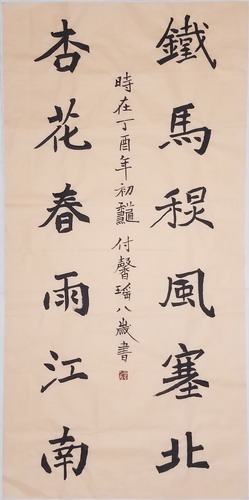 鐵馬秋風塞北
時在丁酉年初龝 付馨瑶八歲書
杏花春雨江南